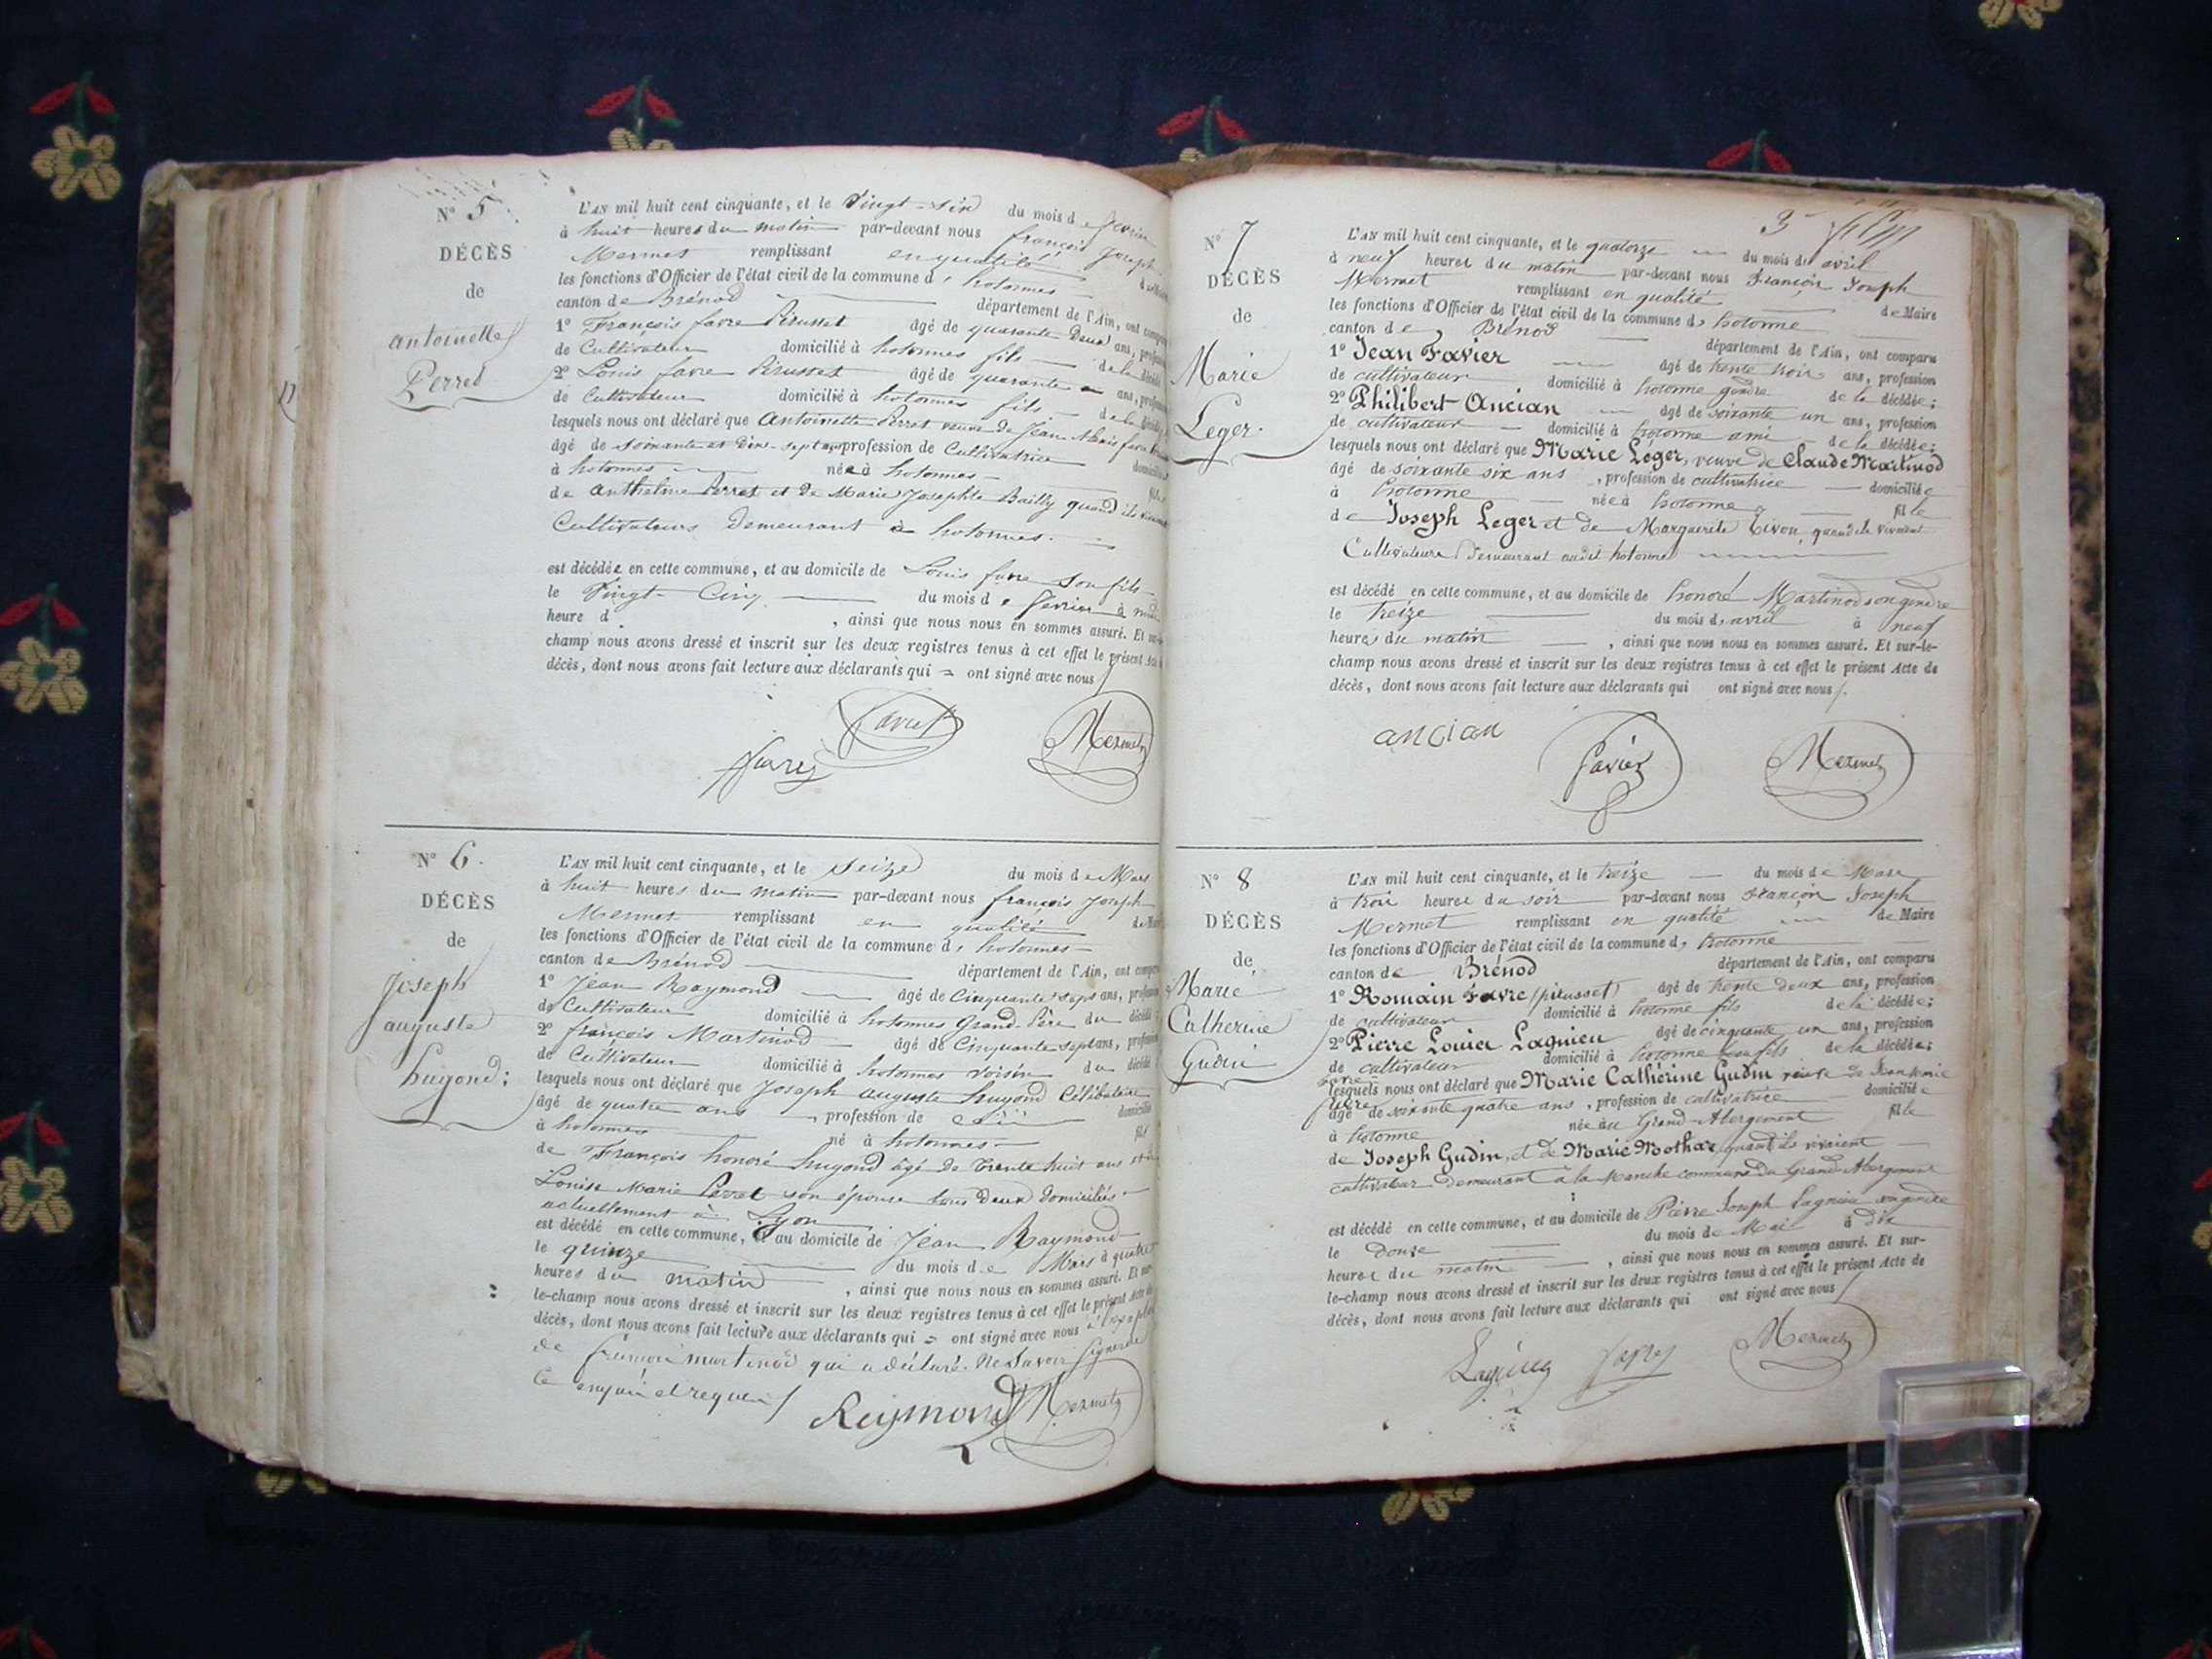 N° 5
DÉCÈS
de
antoinette
Perret
L'AN mil huit cent cinquante, et le Vingt-Six du mois de fevrier
à huit heures du matin par-devant nous françois Joseph
Mermet remplissant en qualité
les fonctions d'Officier de l'état civil de la commune d' hotonnes
canton de Brénod département de l'Ain, ont
1° François favre Pirusset âgé de quarante deux ans,
de Cultivateur domicilié à hotonnes fils de la
2° Louis favre Pirusset âgé de quarante ans,
de Cultivateur domicilié à hotonnes fils de la
lesquels nous ont déclaré que Antoinette Perret veuve de Jean Marie favre
âgé de soixante et dix-sept ans profession de Cultivatrice
à hotonnes née à hotonnes
de Anthelme Perret et de Marie Josephte Bailly quand ils
Cultivateurs demeurant à hotonnes.
est décédée en cette commune, et au domicile de Louis favre son fils
le Vingt-Cinq du mois de fevrier à
heure d , ainsi que nous nous en sommes assuré. Et
champ nous avons dressé et inscrit sur les deux registres tenus à cet effet le présent Acte
décès, dont nous avons fait lecture aux déclarants qui = ont signé avec nous
favre
Mermet
N° 6.
DÉCÈS
de
Joseph
auguste
hugond;
L'AN mil huit cent cinquante, et le Seize du mois de Mars
à huit heures du matin par-devant nous françois Joseph
Mermet remplissant en qualité
les fonctions d'Officier de l'état civil de la commune d' hotonnes
canton de Brénod département de l'Ain, ont
1° Jean Raymond âgé de Cinquante sept ans,
de Cultivateur domicilié à hotonnes Grand-Père du décédé
2° françois Martinod âgé de Cinquante sept ans,
de Cultivateur domicilié à hotonnes voisin du décédé
lesquels nous ont déclaré que Joseph auguste hugond Célibataire
âgé de quatre ans , profession de
à hotonnes né à hotonnes
de François honoré hugond âgé de trente huit ans et de
Louise Marie Perret son épouse tous deux domiciliés
actuellement à Lyon
est décédé en cette commune, et au domicile de Jean Raymond
le quinze du mois de Mars à quatre
heures du matin , ainsi que nous nous en sommes assuré. Et
le-champ nous avons dressé et inscrit sur les deux registres tenus à cet effet le présent
décès, dont nous avons fait lecture aux déclarants qui = ont signé avec nous
de françois martinod qui a déclaré ne savoir signer de
ce enquis et requis
Reymond Mermet
3
N° 7
DÉCÈS
de
Marie
Leger.
L'AN mil huit cent cinquante, et le quatorze du mois de avril
à neuf heures du matin par-devant nous François Joseph
Mermet remplissant en qualité de Maire
les fonctions d'Officier de l'état civil de la commune d' hotonne
canton de Brénod département de l'Ain, ont comparu
1° Jean Favier âgé de trente trois ans, profession
de cultivateur domicilié à hotonne gendre de la décédée;
2° Philibert Ancian âgé de soixante un ans, profession
de cultivateur domicilié à hotonne ami de la décédée;
lesquels nous ont déclaré que Marie Leger, veuve de Claude Martinod
âgé de soixante six ans , profession de cultivatrice domiciliée
à hotonne née à hotonne fille
de Joseph Leger et de Marguerite quand ils vivaient
Cultivateurs Demeurant audit hotonne
est décédé en cette commune, et au domicile de honoré Martinod son gendre
le treize du mois d'avril à neuf
heures du matin , ainsi que nous nous en sommes assuré. Et sur-le-
champ nous avons dressé et inscrit sur les deux registres tenus à cet effet le présent Acte de
décès, dont nous avons fait lecture aux déclarants qui ont signé avec nous
ancian Favier Mermet
N° 8
DÉCÈS
de
Marie
Catherine
Gudin
L'AN mil huit cent cinquante, et le treize du mois de Mars
à trois heures du soir par-devant nous François Joseph
Mermet remplissant en qualité de Maire
les fonctions d'Officier de l'état civil de la commune d' hotonne
canton de Brénod département de l'Ain, ont comparu
1° Romain Favre (pirusset) âgé de trente deux ans, profession
de cultivateur domicilié à hotonne fils de la décédée;
2° Pierre Louis Lagnieu âgé de cinquante un ans, profession
de cultivateur domicilié à hotonne beau fils de la décédée;
lesquels nous ont déclaré que Marie Cathérine Gudin veuve de Jean Marie
favre
âgé de soixante quatre ans , profession de cultivatrice domiciliée
à hotonne née au Grand-Abergement fille
de Joseph Gudin, et de Marie Mothaz, quand ils vivaient
cultivateur demeurant à la Manche commune du Grand Abergement
est décédé en cette commune, et au domicile de Pierre Joseph Lagnieu son gendre
le douze du mois de Mai à dix
heures du matin , ainsi que nous nous en sommes assuré. Et sur-
le-champ nous avons dressé et inscrit sur les deux registres tenus à cet effet le présent Acte de
décès, dont nous avons fait lecture aux déclarants qui ont signé avec nous
Lagnieu favre Mermet